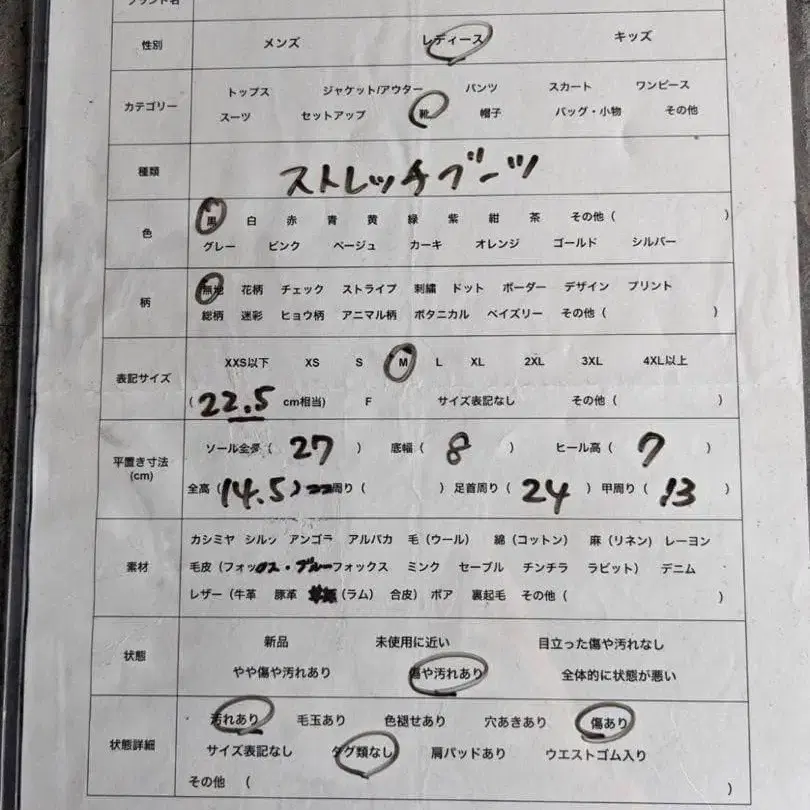 ブランド名
性別 メンズ レディース キッズ
カテゴリー
トップス ジャケット/アウター パンツ スカート ワンピース
スーツ セットアップ 靴 帽子 バッグ・小物 その他
種類 ストレッチブーツ
色
黒 白 赤 青 黄 緑 紫 紺 茶 その他 ( )
グレー ピンク ベージュ カーキ オレンジ ゴールド シルバー
柄
無地 花柄 チェック ストライプ 刺繍 ドット ボーダー デザイン プリント
総柄 迷彩 ヒョウ柄 アニマル柄 ボタニカル ペイズリー その他 ( )
表記サイズ
XXS以下 XS S M L XL 2XL 3XL 4XL以上
( 22.5 cm相当) F サイズ表記なし その他 ( )
平置き寸法
(cm)
ソール全長 ( 27 ) 底幅 ( 8 ) ヒール高 ( 7 )
全高 ( 14.5 ) 周り ( ) 足首周り ( 24 ) 甲周り ( 13 )
素材
カシミヤ シルク アンゴラ アルパカ 毛 (ウール) 綿 (コットン) 麻 (リネン) レーヨン
毛皮 (フォックス・ブルーフォックス ミンク セーブル チンチラ ラビット) デニム
レザー (牛革 豚革 (ラム) 合皮) ボア 裏起毛 その他 ( )
状態
新品 未使用に近い 目立った傷や汚れなし
やや傷や汚れあり 傷や汚れあり 全体的に状態が悪い
状態詳細
汚れあり 毛玉あり 色褪せあり 穴あきあり 傷あり
サイズ表記なし タグ類なし 肩パッドあり ウエストゴム入り
その他 ( )